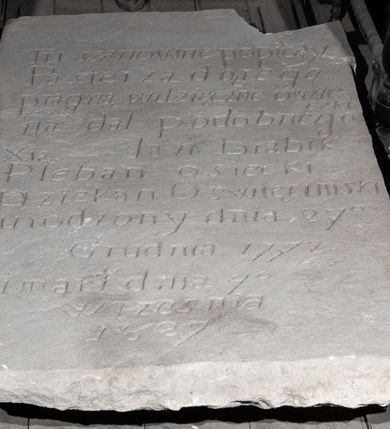 Tu szanowne popioły
Pasterza drogego
pragną wdzięczne owie
czki
na dal podobnego
Xią Jan Brabik
Pleban osiecki
Dziekan Oświęcimski
urodzony dnia 27º
Grudnia 1772
umarł dnia 7º
Września
1827